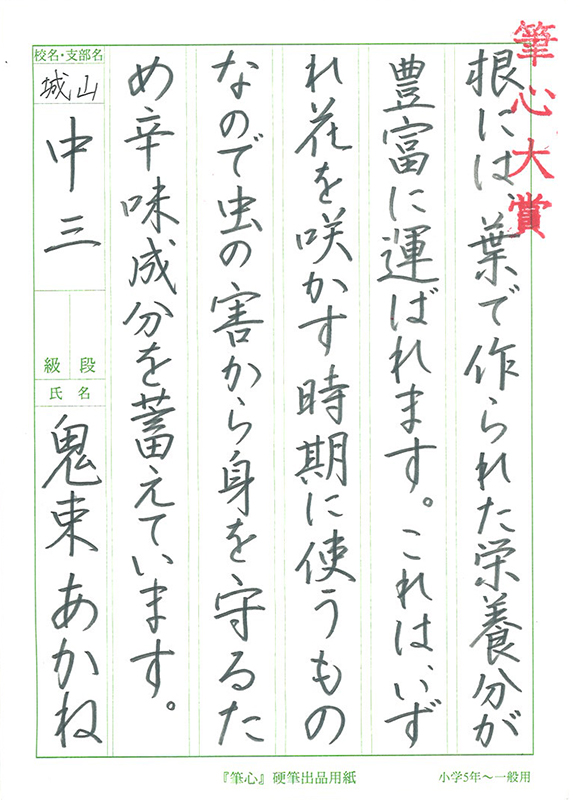 筆心大賞
根には、葉で作られた栄養分が
豊富に運ばれます。これは、いず
れ花を咲かす時期に使うもの
なので虫の害から身を守るた
め辛味成分を蓄えています。
校名・支部名
城山
中三
級 段
氏名
鬼束あかね
『筆心』硬筆出品用紙
小学5年〜一般用